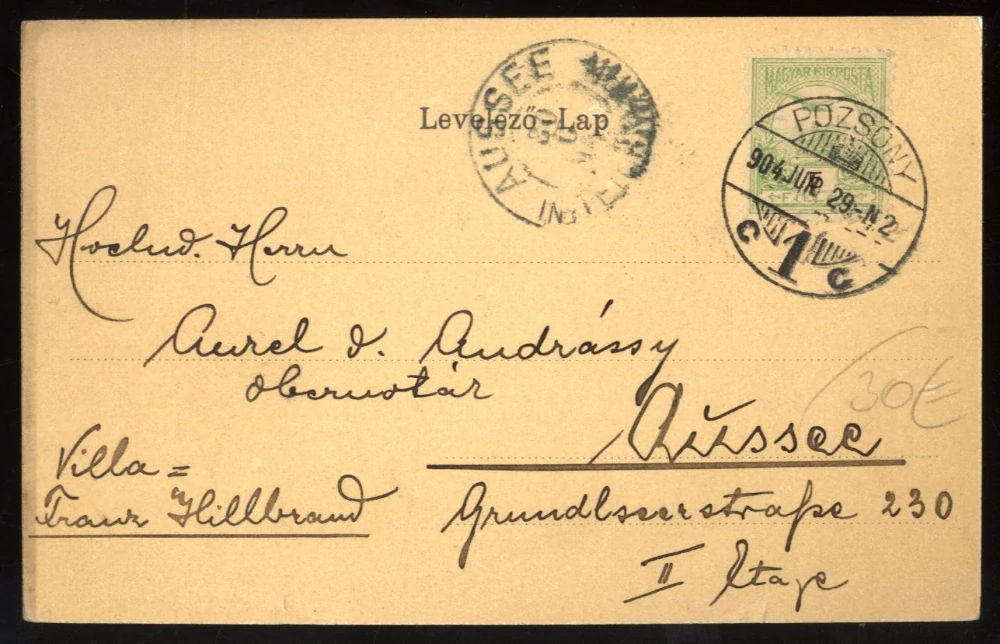 Levelező-Lap
AUSSEE
MAGYAR KIR. POSTA
POZSONY
904 JUL. 29.-N 2
C 1 C
Hochw. Herrn
Aurel v. Andrássy
Obernotár
Aussee
Villa =
Franz Hillbrand
Grundlseerstraße 230
II Etage
30€